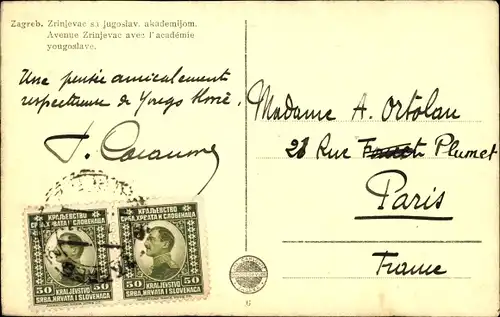 Zagreb. Zrinjevac sa jugoslav. akademijom.
Avenue Zrinjevac avec l'académie
yougoslave.
Une pensée amicalement
respectueuse de
Madame A. Ortolan
28 Rue Plumet
Paris
France
КРАЉЕВСТВО
СРБА, ХРВАТА И СЛОВЕНАЦА
50 50
KRALJEVSTVO
SRBA, HRVATA I SLOVENACA
КРАЉЕВСТВО
СРБА, ХРВАТА И СЛОВЕНАЦА
50 50
KRALJEVSTVO
SRBA, HRVATA I SLOVENACA